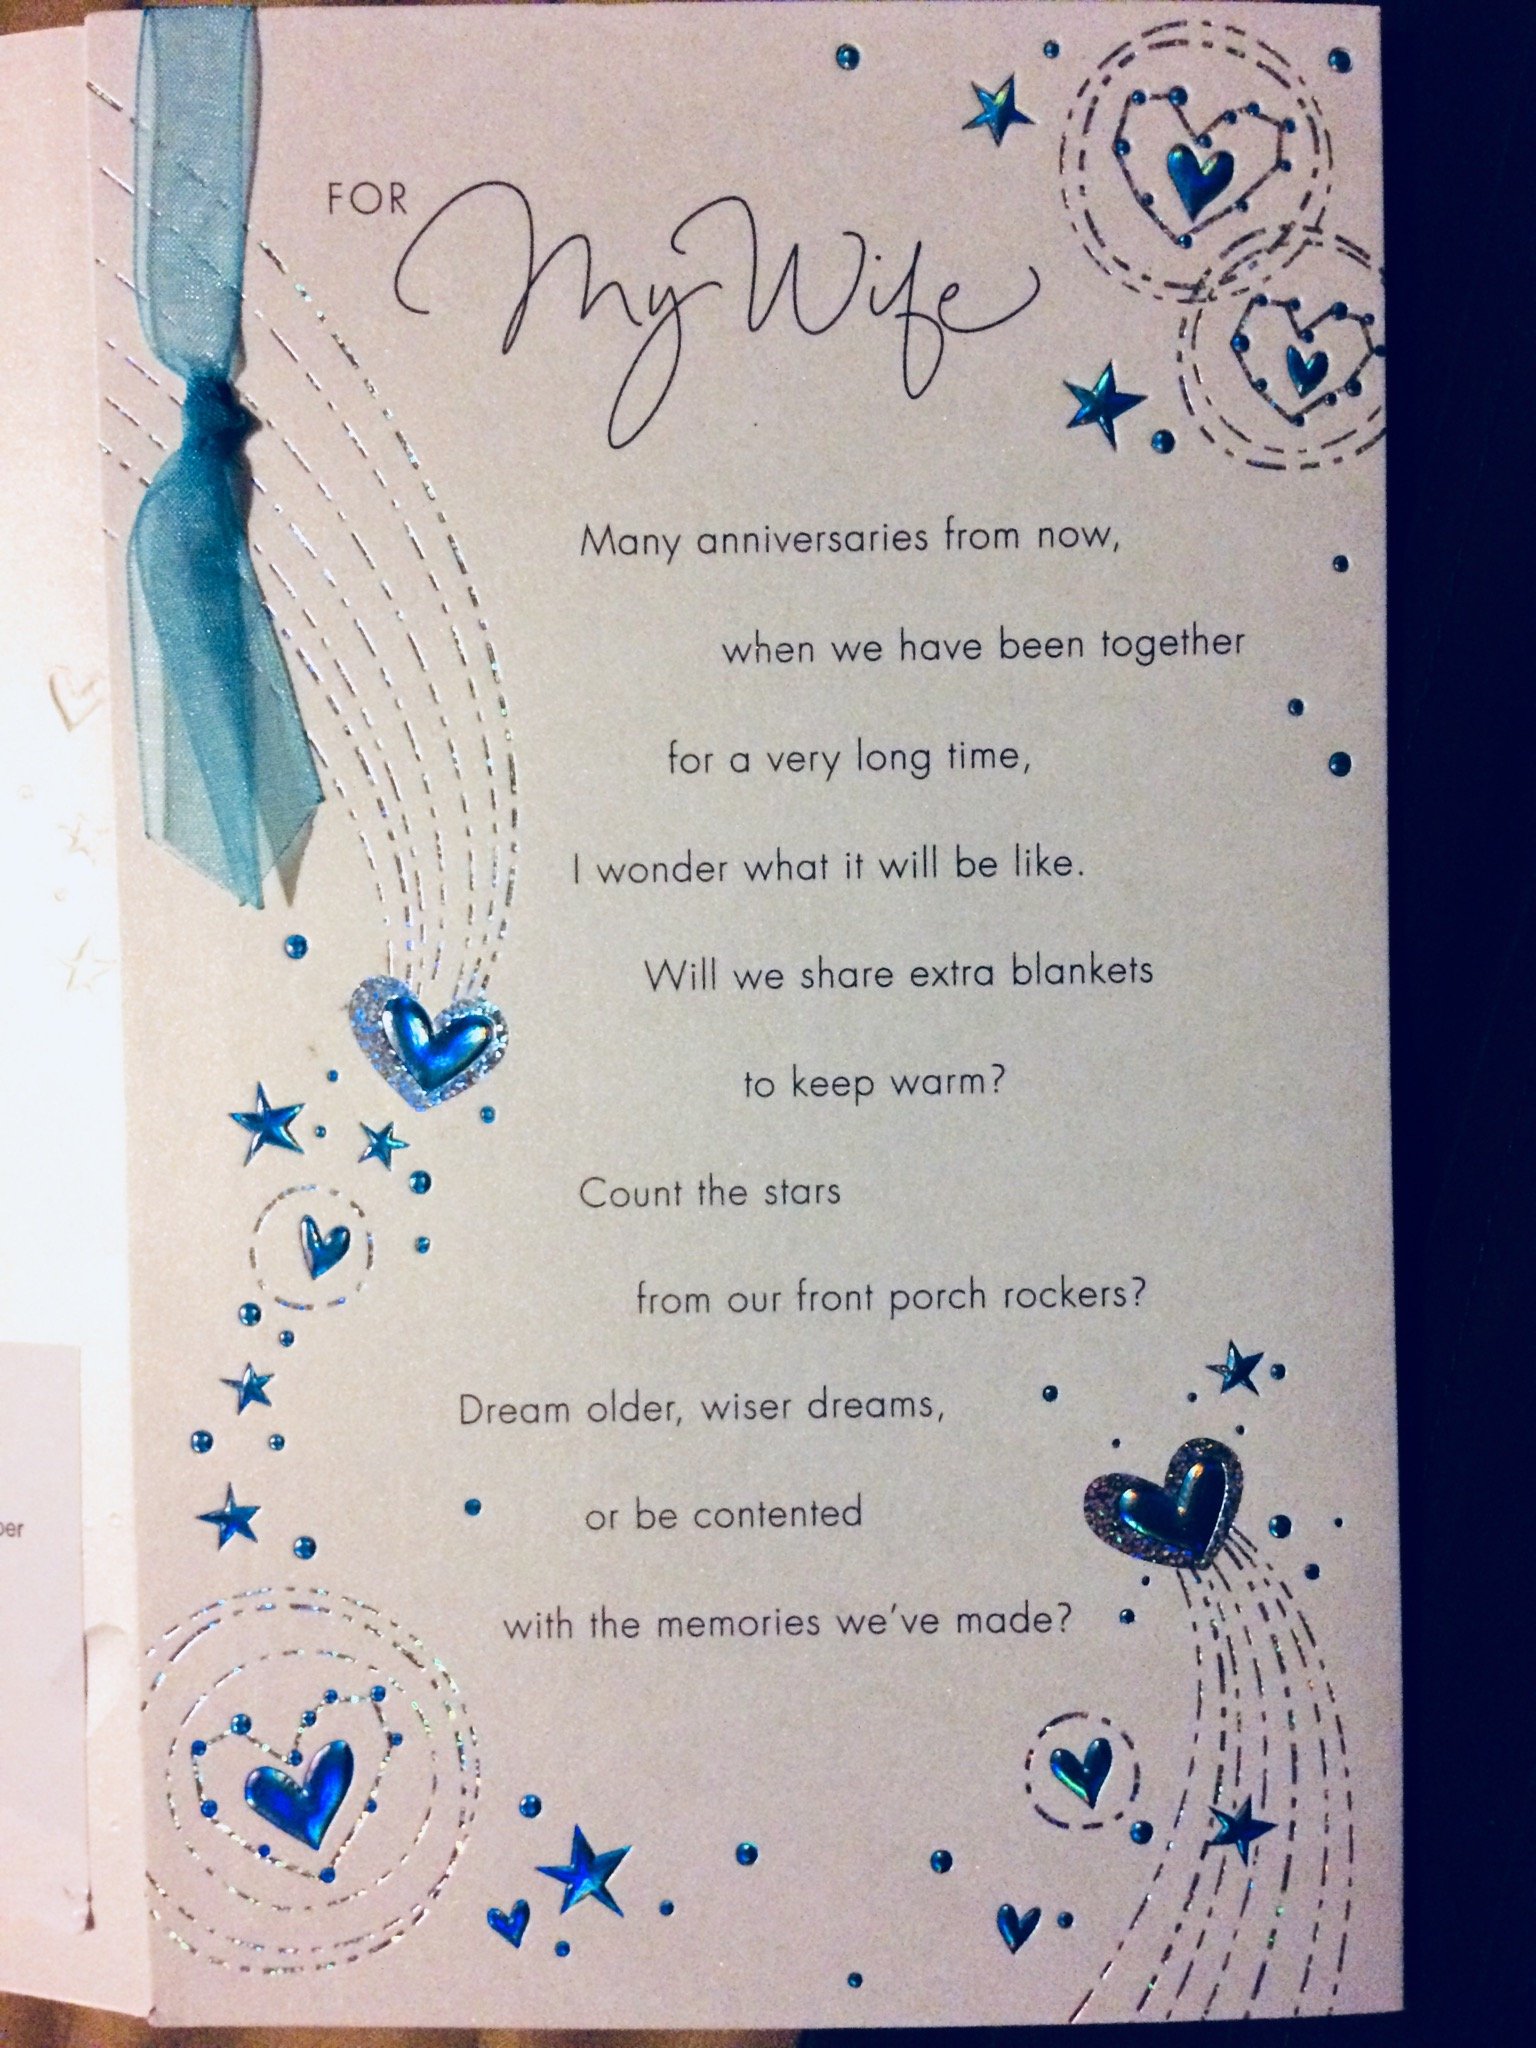 FOR
My Wife
Many anniversaries from now,
when we have been together
for a very long time,
I wonder what it will be like.
Will we share extra blankets
to keep warm?
Count the stars
from our front porch rockers?
Dream older, wiser dreams,
or be contented
with the memories we've made?